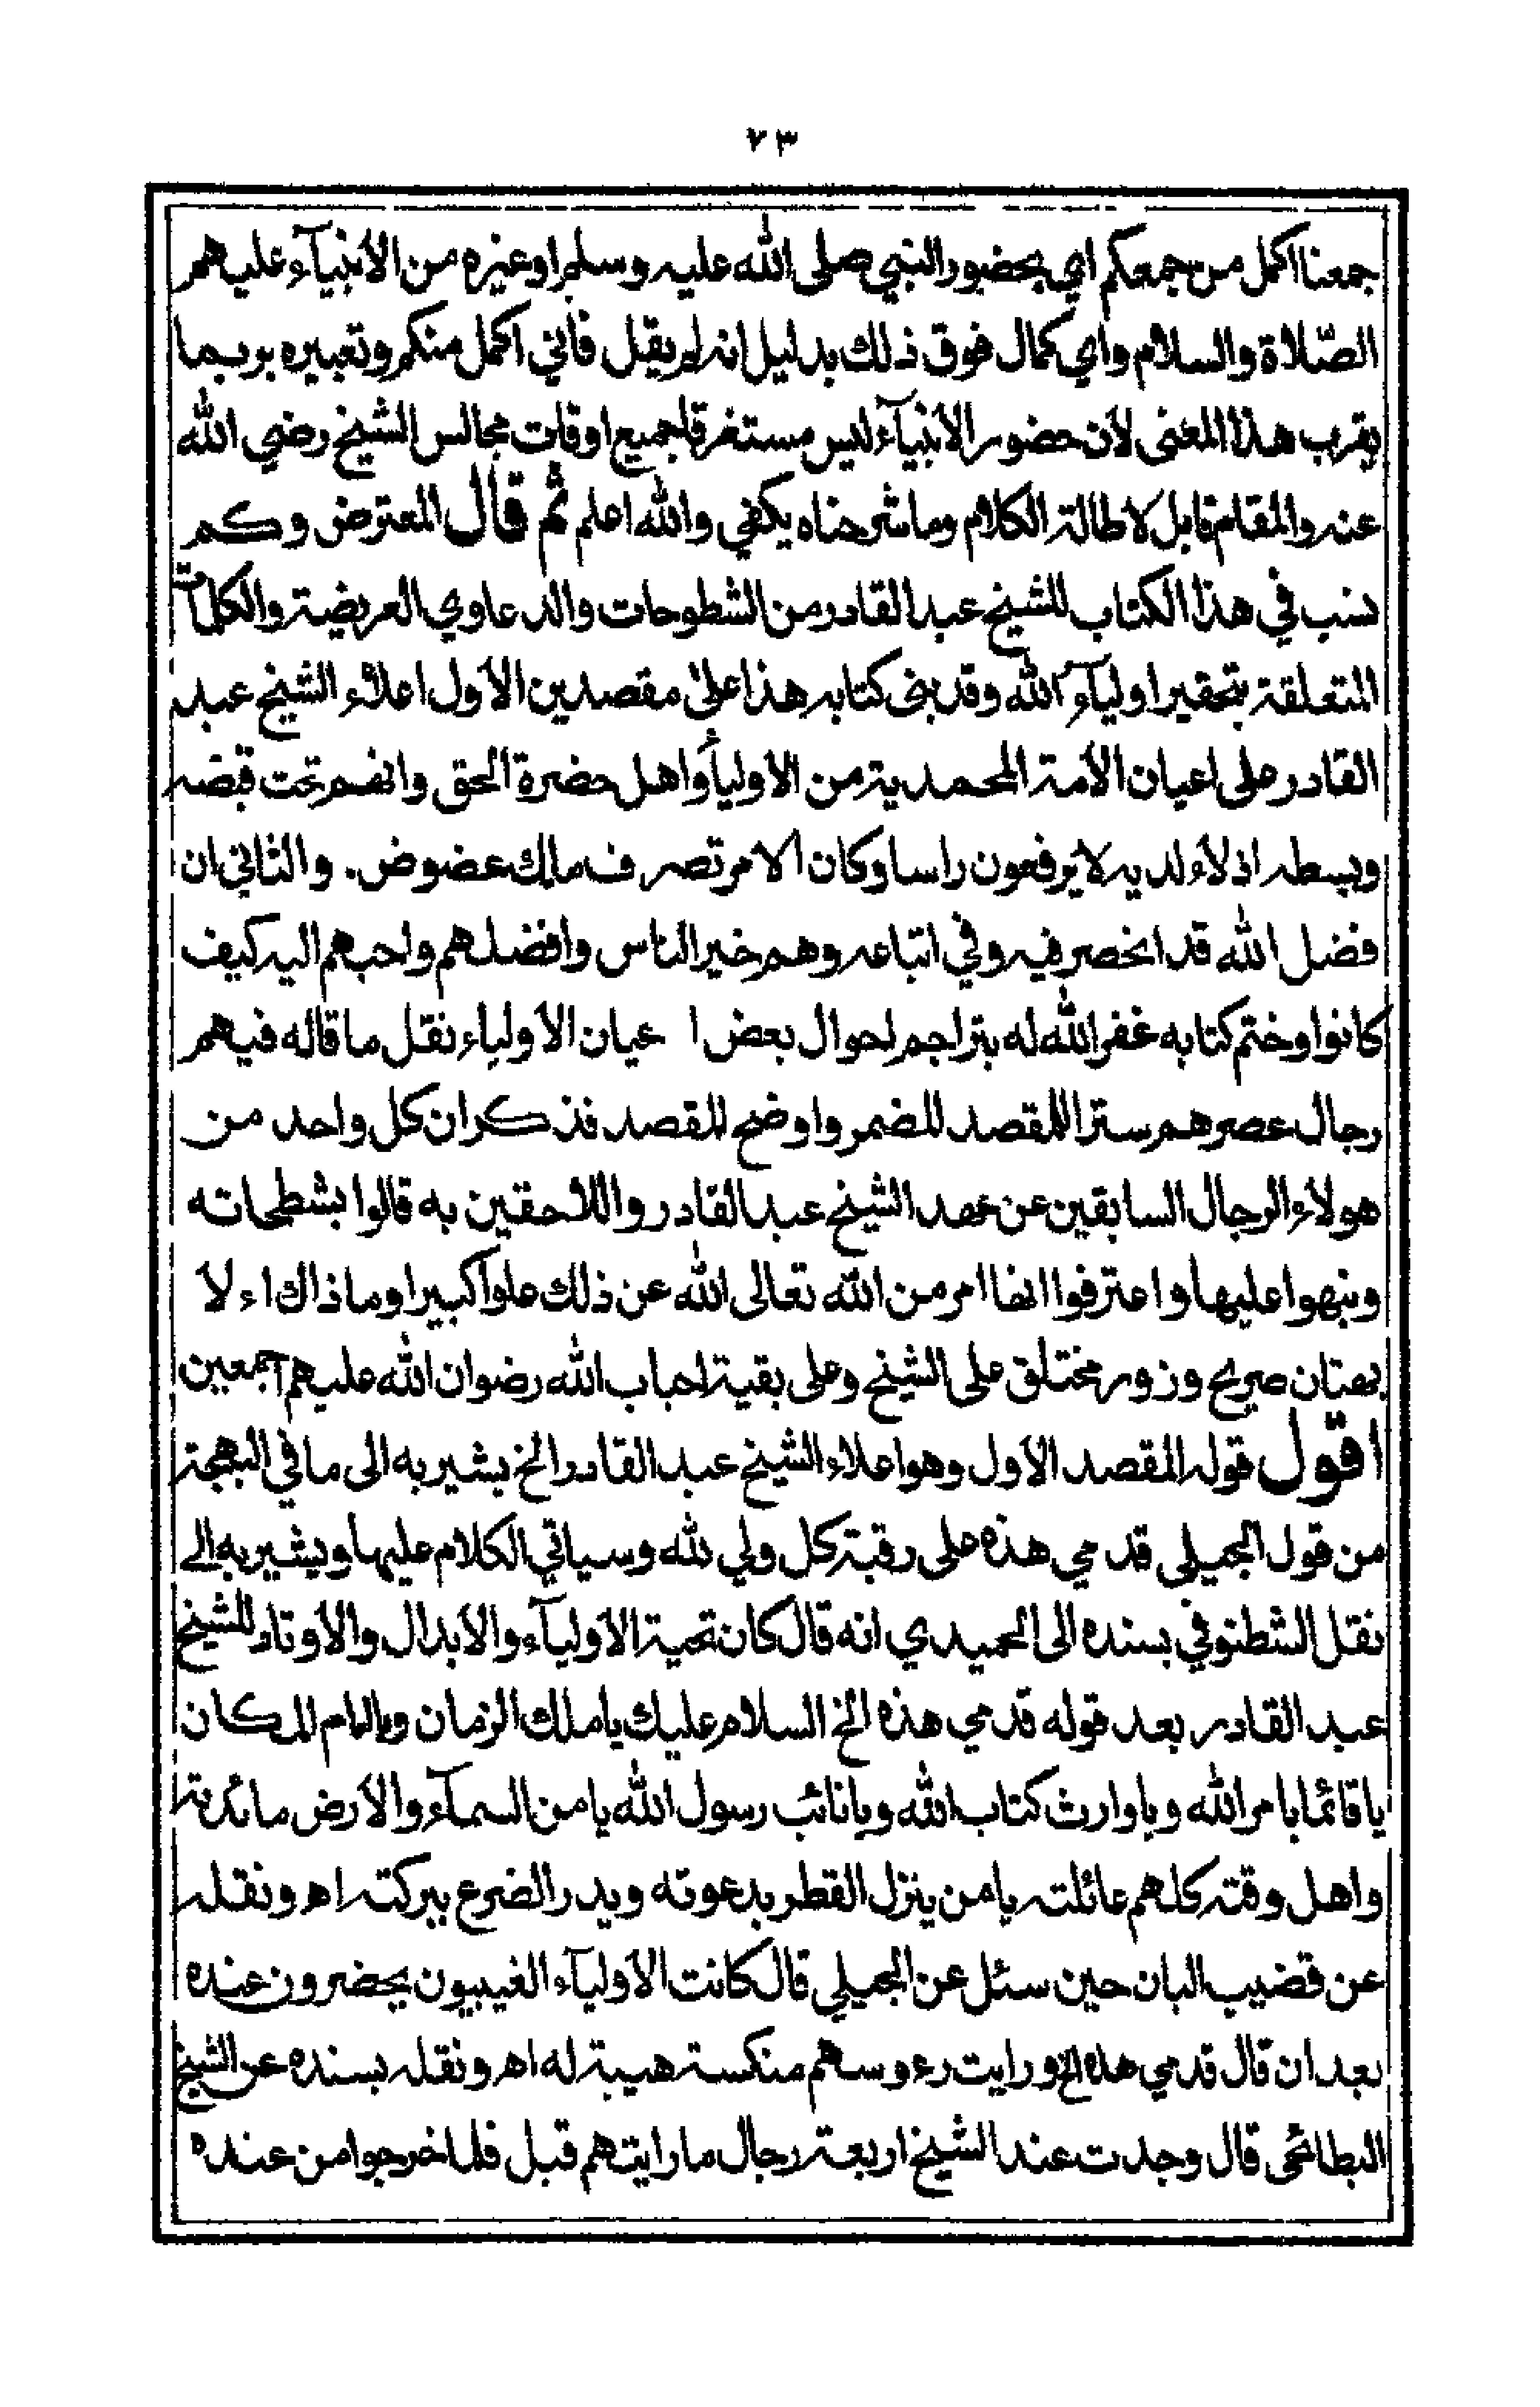 ٧٣
جمعنا اكمل من جمعكم اي بحضور النبي صلى الله عليه وسلم او غيره من الأنبيآء عليهم
الصّلاة والسلام واي كمال فوق ذلك بدليل انه لم يقل فأني اكمل منكم وتعبيره بربما
يقرب هذا المعنى لأن حضور الأنبيآء ليس مستغرقا جميع اوقات مجالس الشيخ رضي الله
عنه والمقام قابل لاطالة الكلام وما شرحناه يكفي والله اعلم ثم قال المعترض وكم
نسب في هذا الكتاب للشيخ عبد القادر من الشطوحات والدعاوي العريضة والكلمآت
المتعلقة بتحقير اوليآء الله وقد بنى كتابه هذا على مقصدين الأول اعلاء الشيخ عبد
القادر على اعيان الأمة المحمدية من الاوليأ واهل حضرة الحق وانهم تحت قبضه
وبسطه اذلاء لديه لا يرفعون راسا وكان الامر تصرف مالك عضوض. والثاني ان
فضل الله قد انحصر فيه وفي اتباعه وهم خير الناس وافضلهم واحبهم اليه كيف
كانوا وختم كتابه غفر الله له بتراجم احوال بعض ا عيان الأولياء نقل ما قاله فيهم
رجال عصرهم سترا للمقصد المضمر واوضح المقصد فذكر ان كل واحد من
هولاء الرجال السابقين عن عهد الشيخ عبد القادر واللاحقين به قالوا بشطحاته
ونبهوا عليها واعترفوا انها امر من الله تعالى الله عن ذلك علوا كبيرا وما ذاك اء لا
بهتان صريح وزور مختلق على الشيخ وعلى بقية احباب الله رضوان الله عليهم اجمعين
اقول قوله المقصد الأول وهو اعلاء الشيخ عبد القادر الخ يشير به الى ما في البهجة
من قول الجيلي قدمي هذه على رقبة كل ولي لله وسياتي الكلام عليها ويشير به الى
نقل الشطنوفي بسنده الى الحميدي انه قال كان تحية الأوليآء والابدال والأوتاد للشيخ
عبد القادر بعد قوله قدمي هذه الخ السلام عليك يا ملك الزمان ويا امام المكان
يا قائما بامر الله ويا وارث كتاب الله ويا نائب رسول الله يا من السمآء والأرض مائدته
واهل وقته كلهم عائلته يا من ينزل القطر بدعوته ويدر الضرع ببركته اهـ ونقله
عن قضيب البان حين سئل عن الجيلي قال كانت الأوليآء الغيبيون يحضرون عنده
بعد ان قال قدمي هذه الخ ورايت رءوسهم منكسة هيبة له اهـ ونقله بسنده عن الشيخ
البطائحى قال وجدت عند الشيخ اربعة رجال ما رايتهم قبل فلما خرجوا من عنده